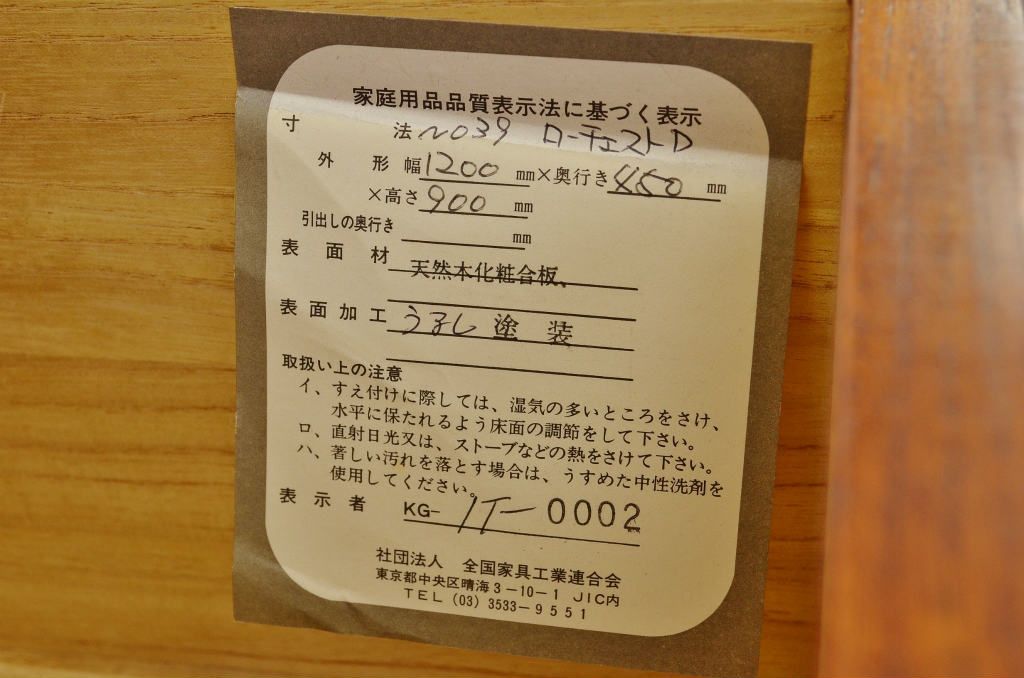 家庭用品品質表示法に基づく表示
寸法 NO39 ローチェストD
外形 幅 1200 mm×奥行き 450 mm
×高さ 900 mm
引出しの奥行き mm
表面材 天然木化粧合板、
表面加工 うるし 塗装
取扱い上の注意
イ、すえ付けに際しては、湿気の多いところをさけ、
水平に保たれるよう床面の調節をして下さい。
ロ、直射日光又は、ストーブなどの熱をさけて下さい。
ハ、著しい汚れを落とす場合は、うすめた中性洗剤を
使用してください。
表示者 KG- 1T- 0002
社団法人 全国家具工業連合会
東京都中央区晴海3-10-1 JIC内
TEL (03) 3533-9551